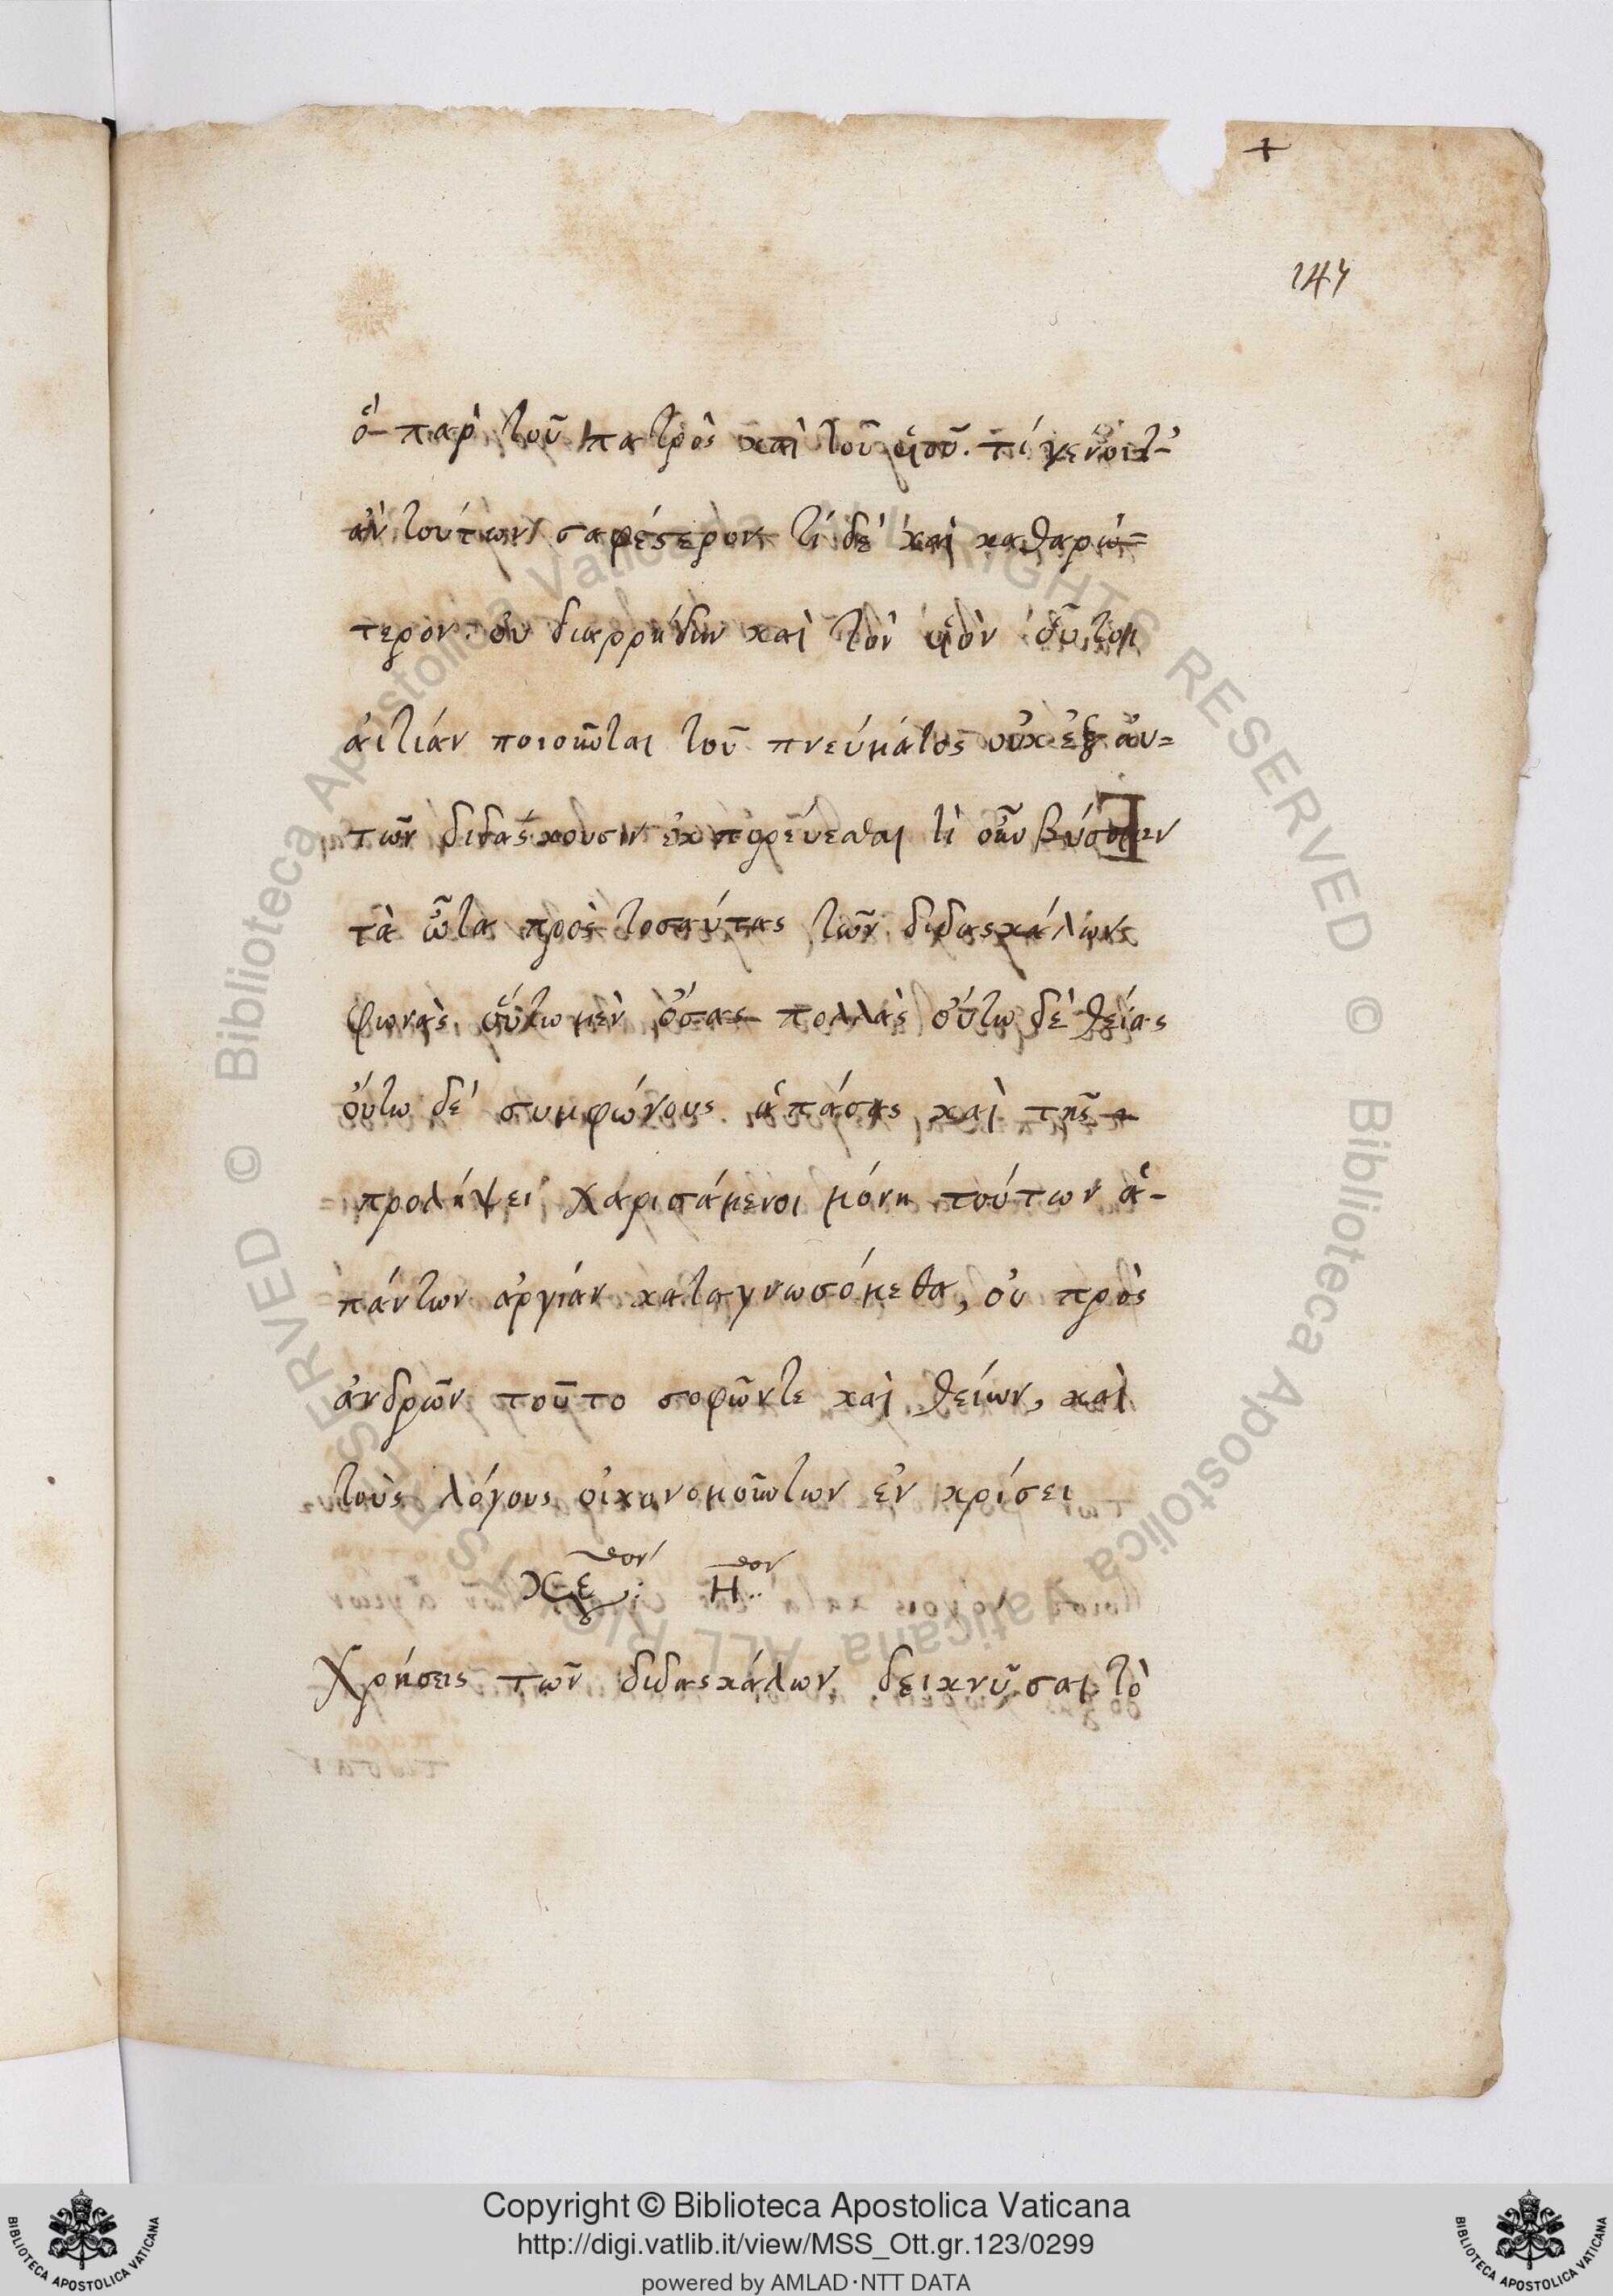 +
147
ὁ παρὰ τοῦ πατρὸς καὶ τοῦ υἱοῦ. τί γένοιτ᾽
ἀν τούτων σαφέστερον τί δέ καὶ καθαρώ=
τερον. οὐ διαρρήδην καὶ τὸν υἱὸν
ἀιτίαν ποιοῦνται τοῦ πνεύματος οὐκ ἐξ ἀυ=
τῶν διδάσκουσιν ἐκπορεύεσθαι τί οὖν βύσομεν
τὰ ὦτα πρὸς τοσαύτας τῶν διδασκάλων
φωνὰς οὕτω μὲν οὔσας πολλὰς οὕτω δὲ θείας
οὕτω δέ συμφώνους ἁπάσας καὶ τῆς
προλήψει χαρισάμενοι μόνη τούτων ἁ-
πάντων ἀργίαν καταγνωσόμεθα, οὐ πρὸς
ἀνδρῶν τοῦτο σοφῶν τε καὶ θείων, καὶ
τοὺς λόγους οἰκονομοῦντων ἐν κρίσει
Χρήσεις τῶν διδασκάλων δεικνῦσαι τὸ
Copyright © Biblioteca Apostolica Vaticana
http://digi.vatlib.it/view/MSS_Ott.gr.123/0299
powered by AMLAD·NTT DATA
BIBLIOTECA APOSTOLICA VATICANA
BIBLIOTECA APOSTOLICA VATICANA
© Biblioteca Apostolica Vaticana ALL RIGHTS RESERVED © Biblioteca Apostolica Vaticana ALL RIGHTS RESERVED